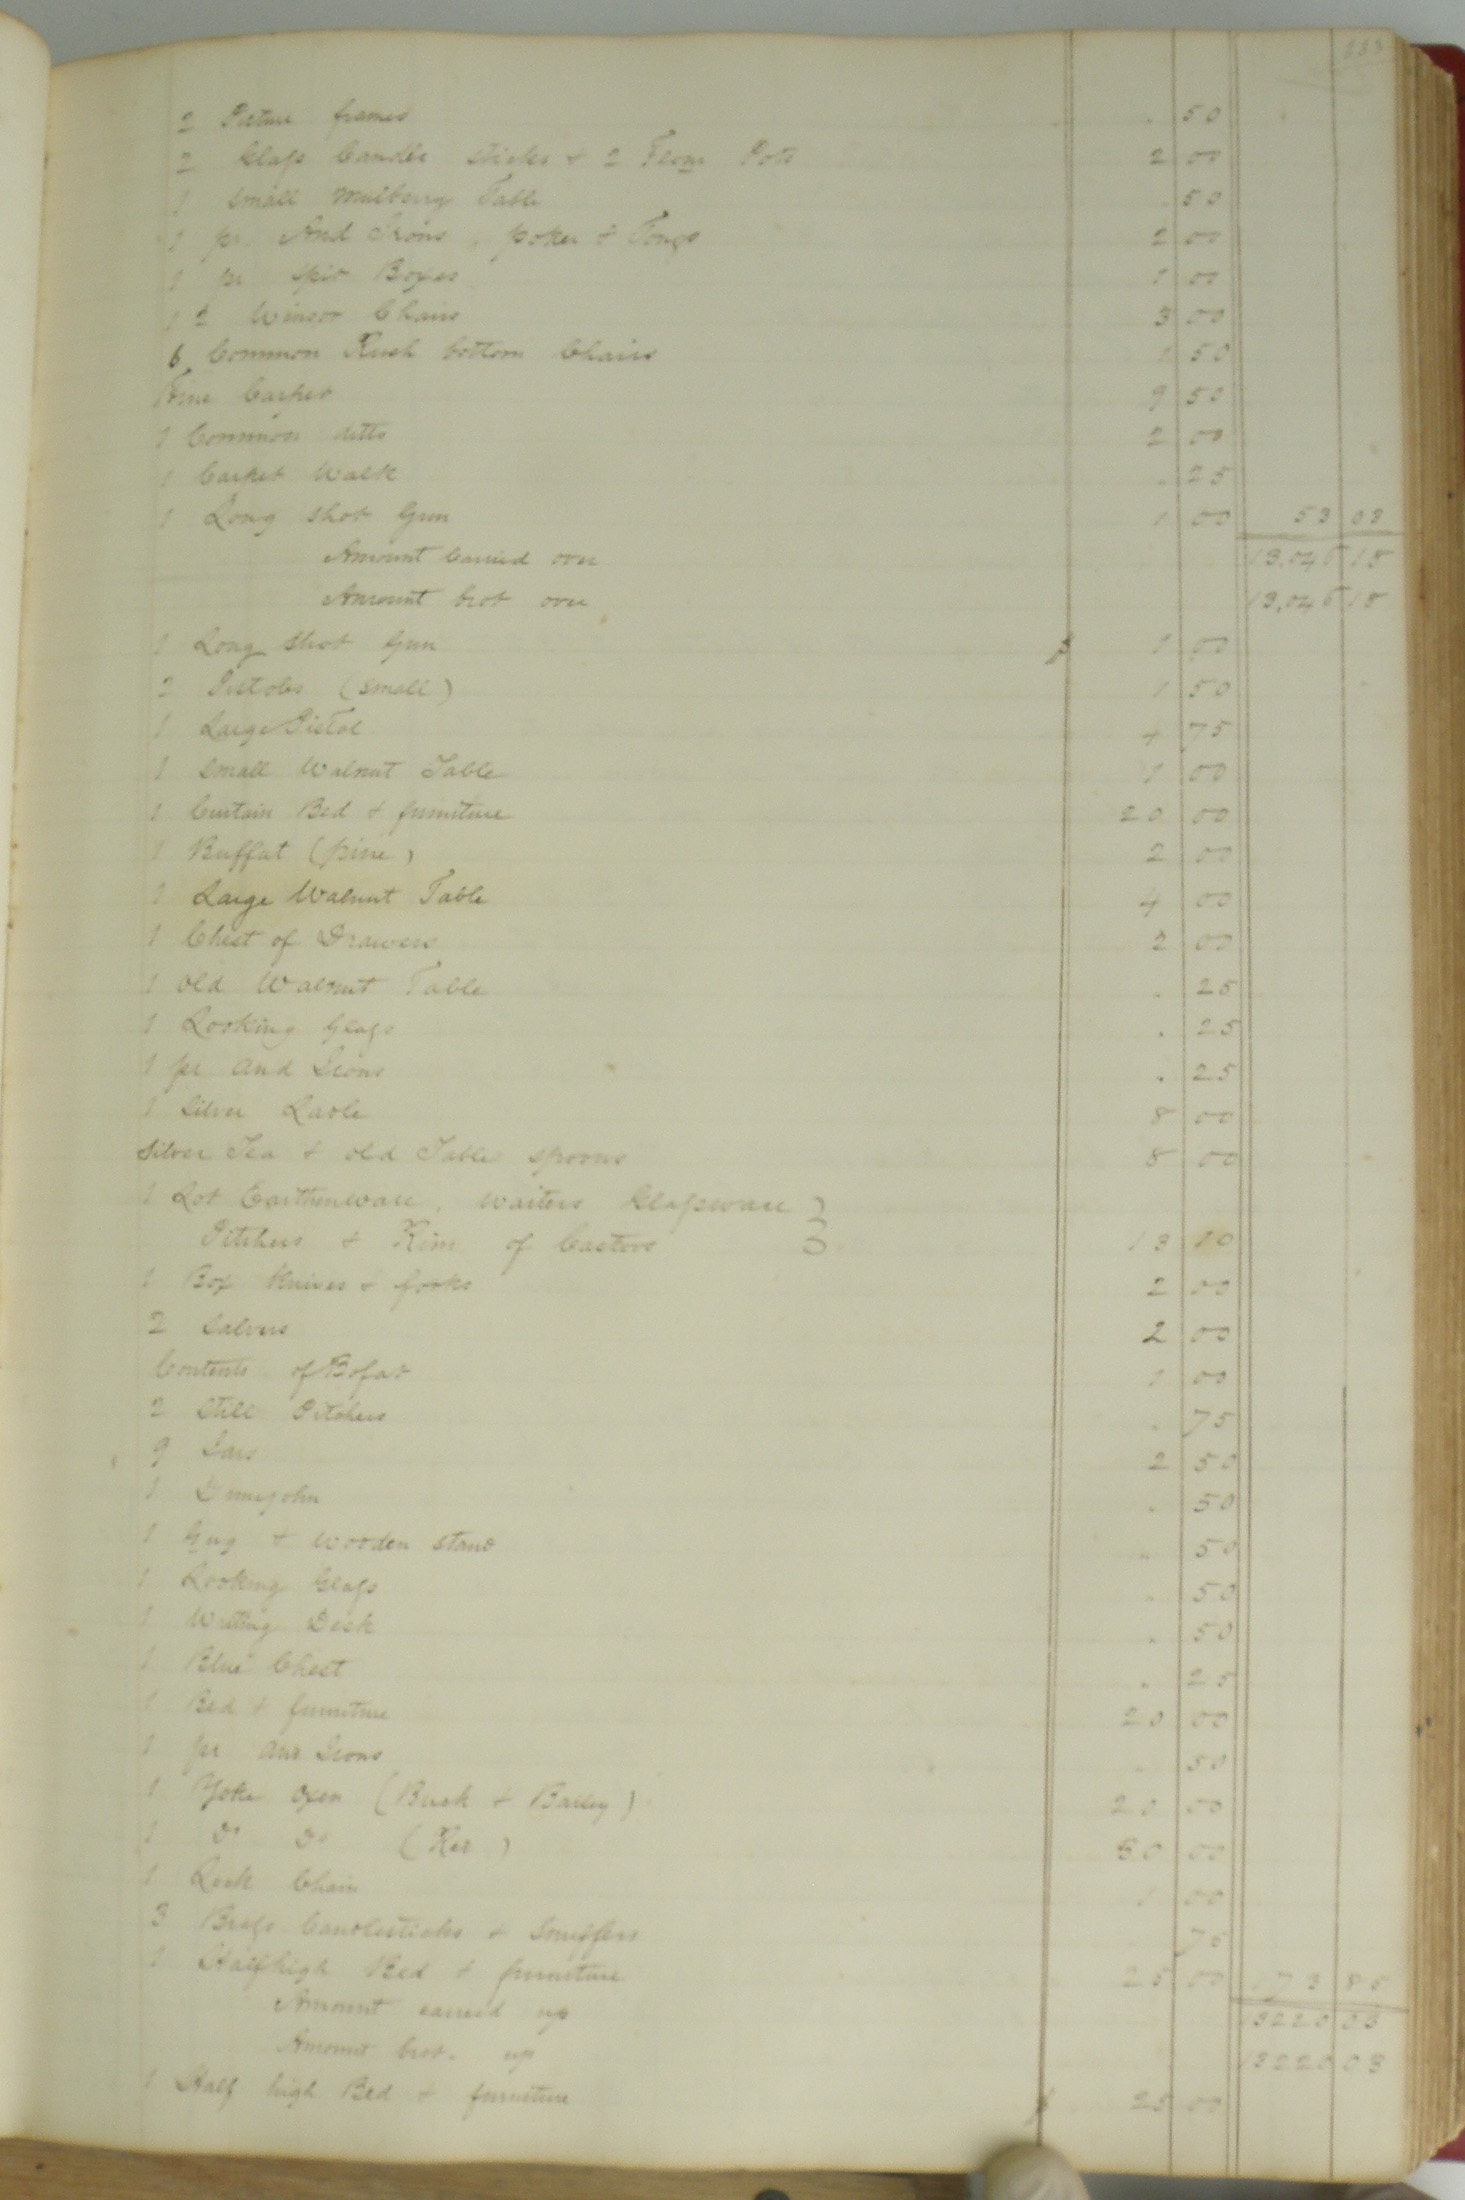 2 Picture frames . 50
2 Glass Candle sticks + 2 Flour Pots 2 00
1 small mulberry Table . 50
1 pr. And Irons, poker + Tongs 2 00
1 pr spit Boxes 1 00
12 Winsor Chairs 3 00
6 Common Rush bottom Chairs 1 50
Fine Carpet 9 50
1 Common ditto 2 00
1 Carpet Walk . 25
1 Long shot Gun 1 00 53 03
Amount Carried over 13,046 18
Amount brot over 13,046 18
1 Long Shot Gun $ 1 00
2 Pistoles (small) 1 50
1 Large Pistol 4 75
1 Small Walnut Table 1 00
1 Curtain Bed + furniture 20 00
1 Buffat (pine) 2 00
1 Large Walnut Table 4 00
1 Chest of Drawers 2 00
1 Old Walnut Table . 25
1 Looking Glass . 25
1 pr And Irons . 25
1 Silver Ladle 8 00
Silver Tea + old Table spoons 8 00
1 Lot Earthenware, waiters Glassware
Pitchers + Rim of Castors 13 10
1 Box Knives + forks 2 00
2 Salvers 2 00
Contents of Bofat 1 00
2 Still Pitchers . 75
9 Jars 2 50
1 Dimejohn . 50
1 Gug + wooden stand . 50
1 Looking Glass . 50
1 Writing Desk . 50
1 Blue Chest . 25
1 Bed + furniture 20 00
1 pr And Irons . 50
1 Yoke Oxen (Buck + Bailey) 20 00
1 Do Do 30 00
1 Lock Chain 1 00
3 Brass Candlesticks + Snuffers . 75
1 Half high Bed + furniture 25 00 173 85
Amount carried up 13220 03
Amount brot. up 13220 03
1 Half high Bed + furniture $ 25 00